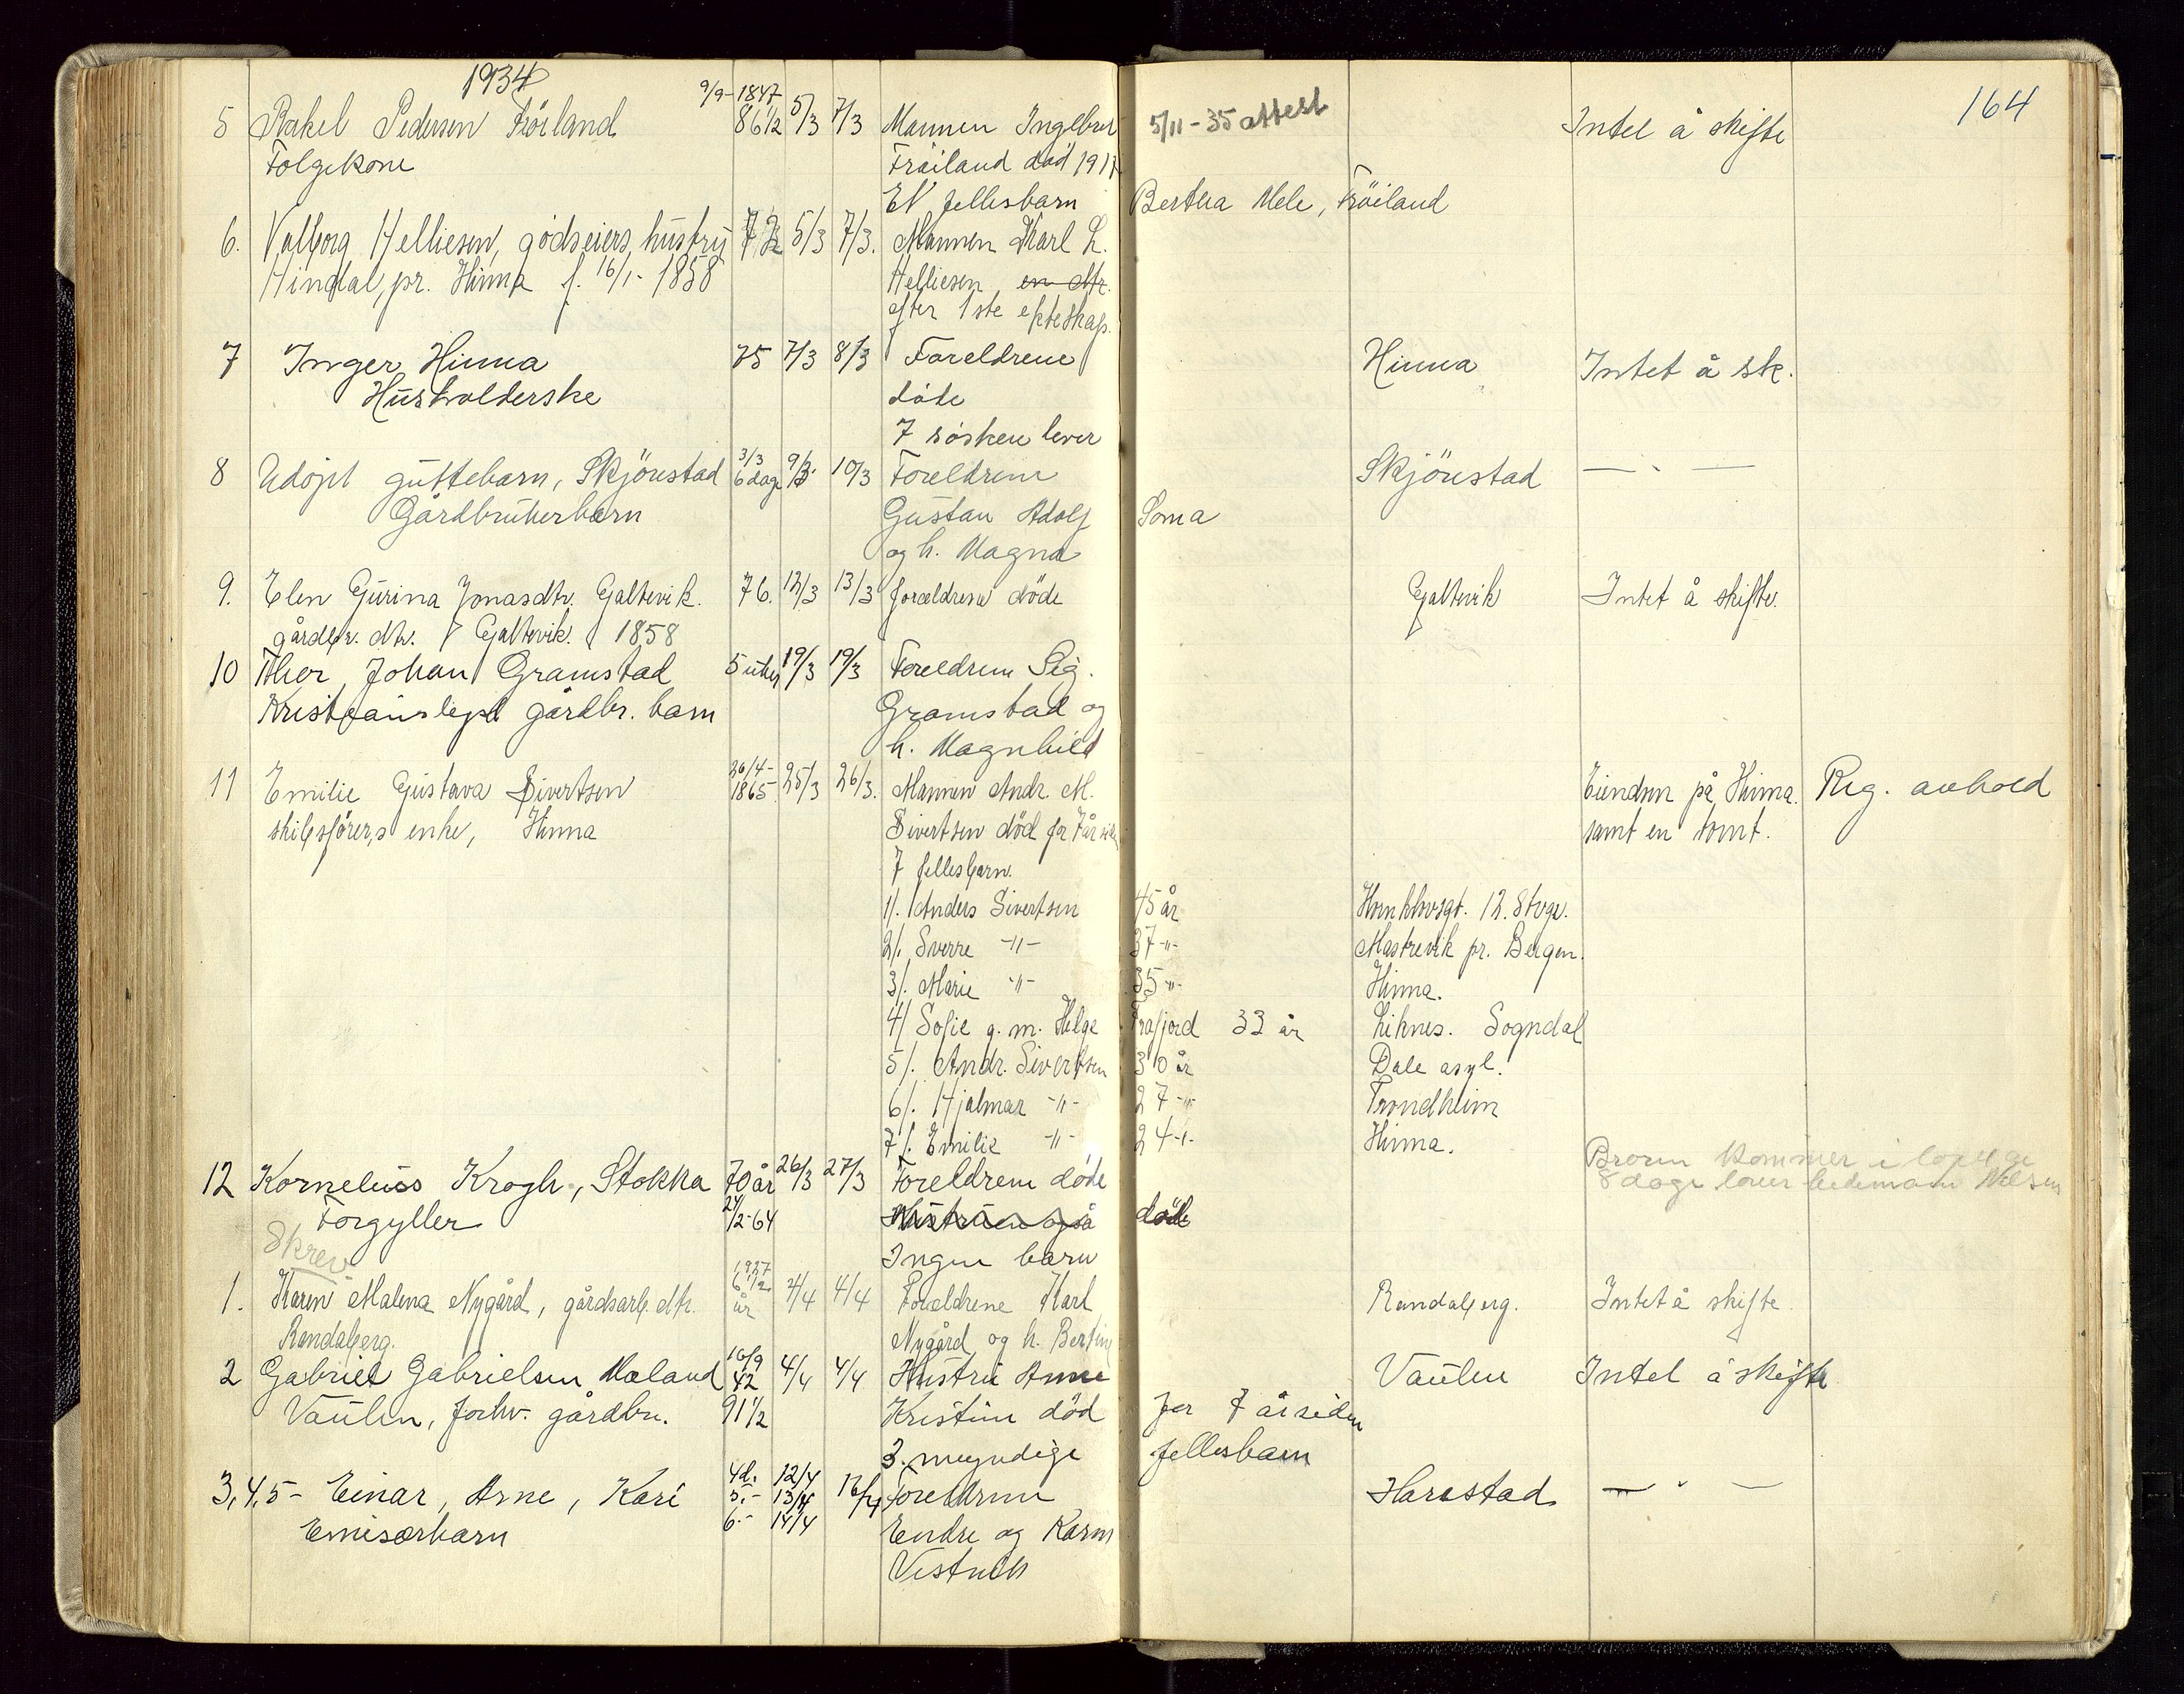 1934
164
5 Rakel Pedersen Fröiland 9/9-1847 86½ 5/3 7/3 Mannen Ingebret 5/11-35 attest Intet å skifte
Folgekone Fröiland död 1917
Et fellesbarn Bertha Mele, Fröiland
6. Valborg Helliesen, godseiers hustru 72 5/3 7/3. Mannen Karl L.
Hindal, pr. Hinna f. 16/1-1858 Helliesen en dtr.
efter 1ste ekteskap.
7 Inger Hinna 75 7/3 8/3 Foreldrene Hinna Intet å sk.
Husholderske döde
7 sösken lever
8 Udöpt guttebarn, Skjöustad 3/3 6 dage 9/3 10/3 Foreldrene Skjöustad — " —
Gårdbrukerbarn Gustav Adolf Soma
og h. Magna
9. Elen Gurina Jonasdtr. Galtevik. 76. 12/3 13/3 foreldrene döde Galtevik Intet å skifte.
gårdbr. dtr. Galtevik. 1858
10 Thor Johan Gramstad 5 uker 19/3 19/3 Foreldrene Sig.
gårdbr. barn Gramstad og
h. Magnhild
11 Emilie Gustava Sivertsen 26/4-1865 25/3 26/3. Mannen Andr. M. Eiendom på Hinna. Reg. anhold
skibsförers enke, Hinna Sivertsen död for 7 år siden samt en tomt.
7 fellesbarn.
1/. Anders Sivertsen 45 år 12. Stvgr.
2/. Sverre -"- 37 -"- Mastrevik pr. Bergen.
3/. Marie -"- 35 -"- Hinna.
4/ Sofie g. m. Helge Frafjord 33 år Liknes. Sogndal
5/. Andr. Sivertsen 30 år Dale asyl.
6/. Hjalmar -"- 27 -"- Trondheim
7/. Emilie -"- 24 -"- Hinna.
12 Kornelius Krogh, Stokka 70 år 26/3 27/3 Foreldrene döde Broren kommer i löpet av
Forgyller 24/2-64 Hustruen også död 8 dage lensmann Nilsen
Skrev Ingen barn
1. Karen Malena Nygård, gårdsarb. dtr. 1927 6½ år 2/4 4/4 Foreldrene Karl Randaberg. Intet å skifte.
Randaberg. Nygård og h. Bertine
2 Gabriel Gabrielsen Mæland 16/9 42 4/4 4/4 Hustru Anne Vaulen Intet å skifte
Vaulen, forhv. gårdbr. 91½ Kristine död for 7 år siden
3 myndige fellesbarn
3,4,5 - Einar, Arne, Kari 4d. 5.- 6.- 12/4 13/4 14/4 16/4 Foreldrene Harestad — " —
Emisærbarn Endre og Karen
Vestvik